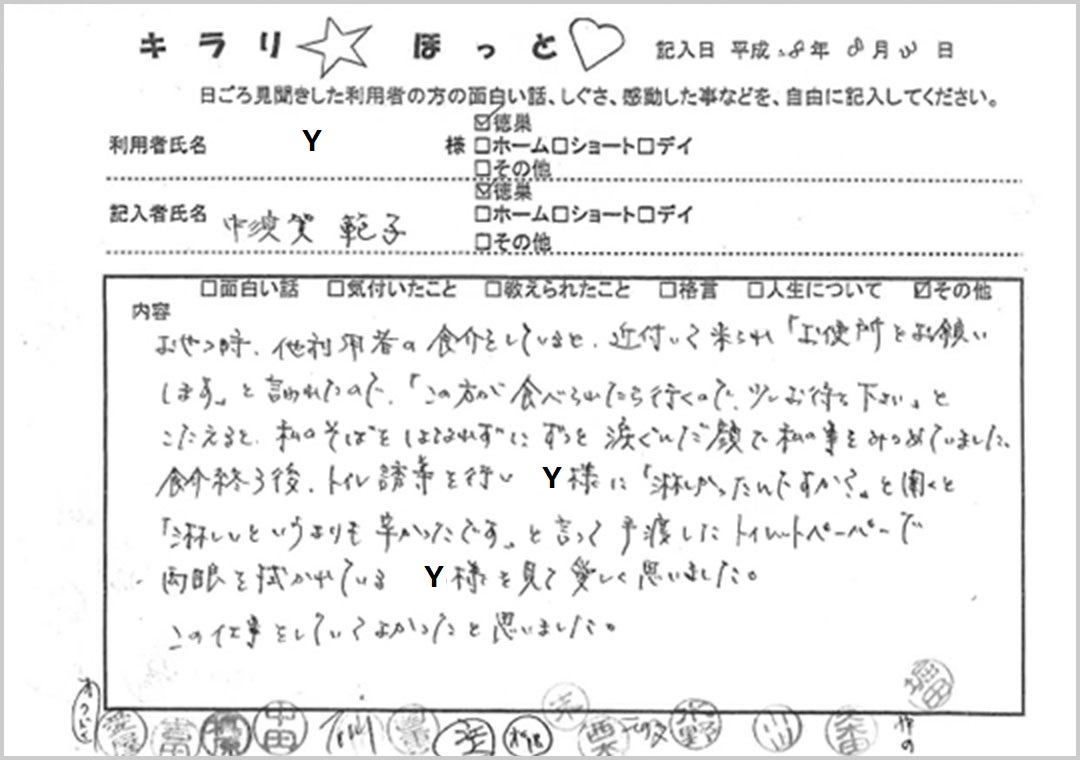 キラリ☆ ほっと♡ 記入日 平成28年 8月 3日
日ごろ見聞きした利用者の方の面白い話、しぐさ、感動した事などを、自由に記入してください。
利用者氏名 Y 様 ☑徳巣
□ホーム□ショート□デイ
□その他
記入者氏名 中濱賀 範子 ☑徳巣
□ホーム□ショート□デイ
□その他
□面白い話 □気付いたこと □教えられたこと □格言 □人生について ☑その他
内容
おやつ時、他利用者の食介をしていると、近付いて来られ「お便所をお願い
します。」と言われたので、「この方が食べられたら行くので、少しお待ち下さい。」と
こたえると、私のそばをはなれずにずっと涙ぐんだ顔で私の事をみつめていました。
食介終了後、トイレ誘導を行い Y様に「淋しかったんですか?」と聞くと
「淋しいというよりも辛かったです。」と言って手渡したトイレットペーパーで
両眼を拭かれている Y様を見て愛しく思いました。
この仕事をしていてよかったと思いました。
中田
西本
水野